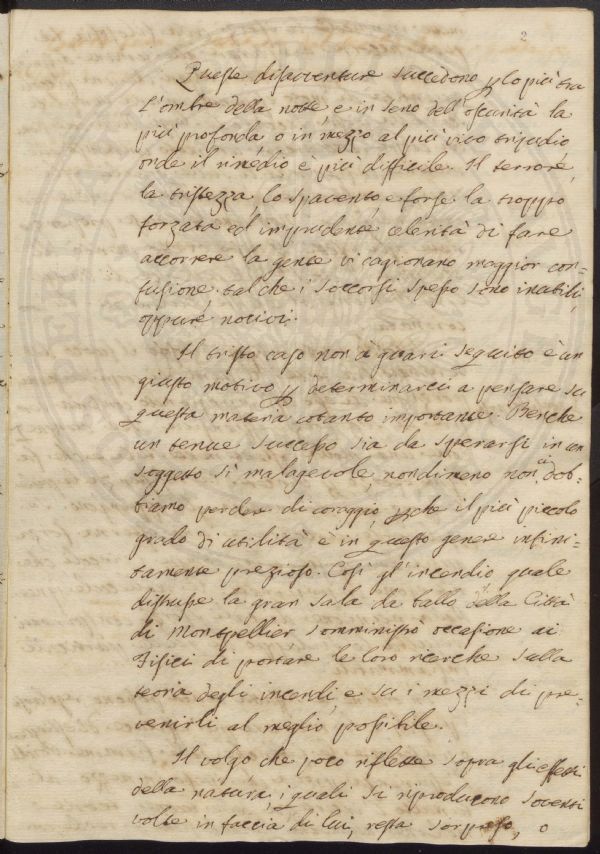 2
Queste disavventure succedono p lo più tra
l'ombre della notte, e in seno dell'oscurità la
più profonda o in mezzo al più vivo tripudio
onde il rimedio è più difficile. Il terrore,
la tristezza, lo spavento e forse la troppo
forzata ed imprudente celerità di fare
accorrere la gente vi cagionano maggior con=
fusione. talche i soccorsi spesso sono inutili,
oppure nocivi.
Il tristo caso non à guari seguito è un
giusto motivo p determinarci a pensare su
questa materia cotanto importante. Benche
un tenue successo sia da sperarsi in un
soggetto sì malagevole, nondimeno non ci dob=
biamo perdere di coraggio, pche il più piccolo
grado di utilità è in questo genere infini=
tamente prezioso. Così gl'incendio quale
distrusse la gran sala da ballo della Città
di Montpellier somministrò occasione ai
Fisici di portare le loro ricerche sulla
teoria degli incendi, e su i mezzi di pre=
venirli al meglio possibile.
Il volgo che poco riflette sopra gli effetti
della natura, i quali si riproducono soventi
volte in faccia di lui, resta sorpreso, o